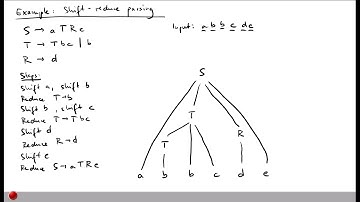 Example: Shift-reduce parsing
S → a T R e
T → T b c | b
R → d
Input: a b b c d e
Steps:
Shift a, shift b
Reduce T→b
Shift b, shift c
Reduce T→Tbc
Shift d
Reduce R→d
Shift e
Reduce S→aTRe
S
T
T
R
a b b c d e